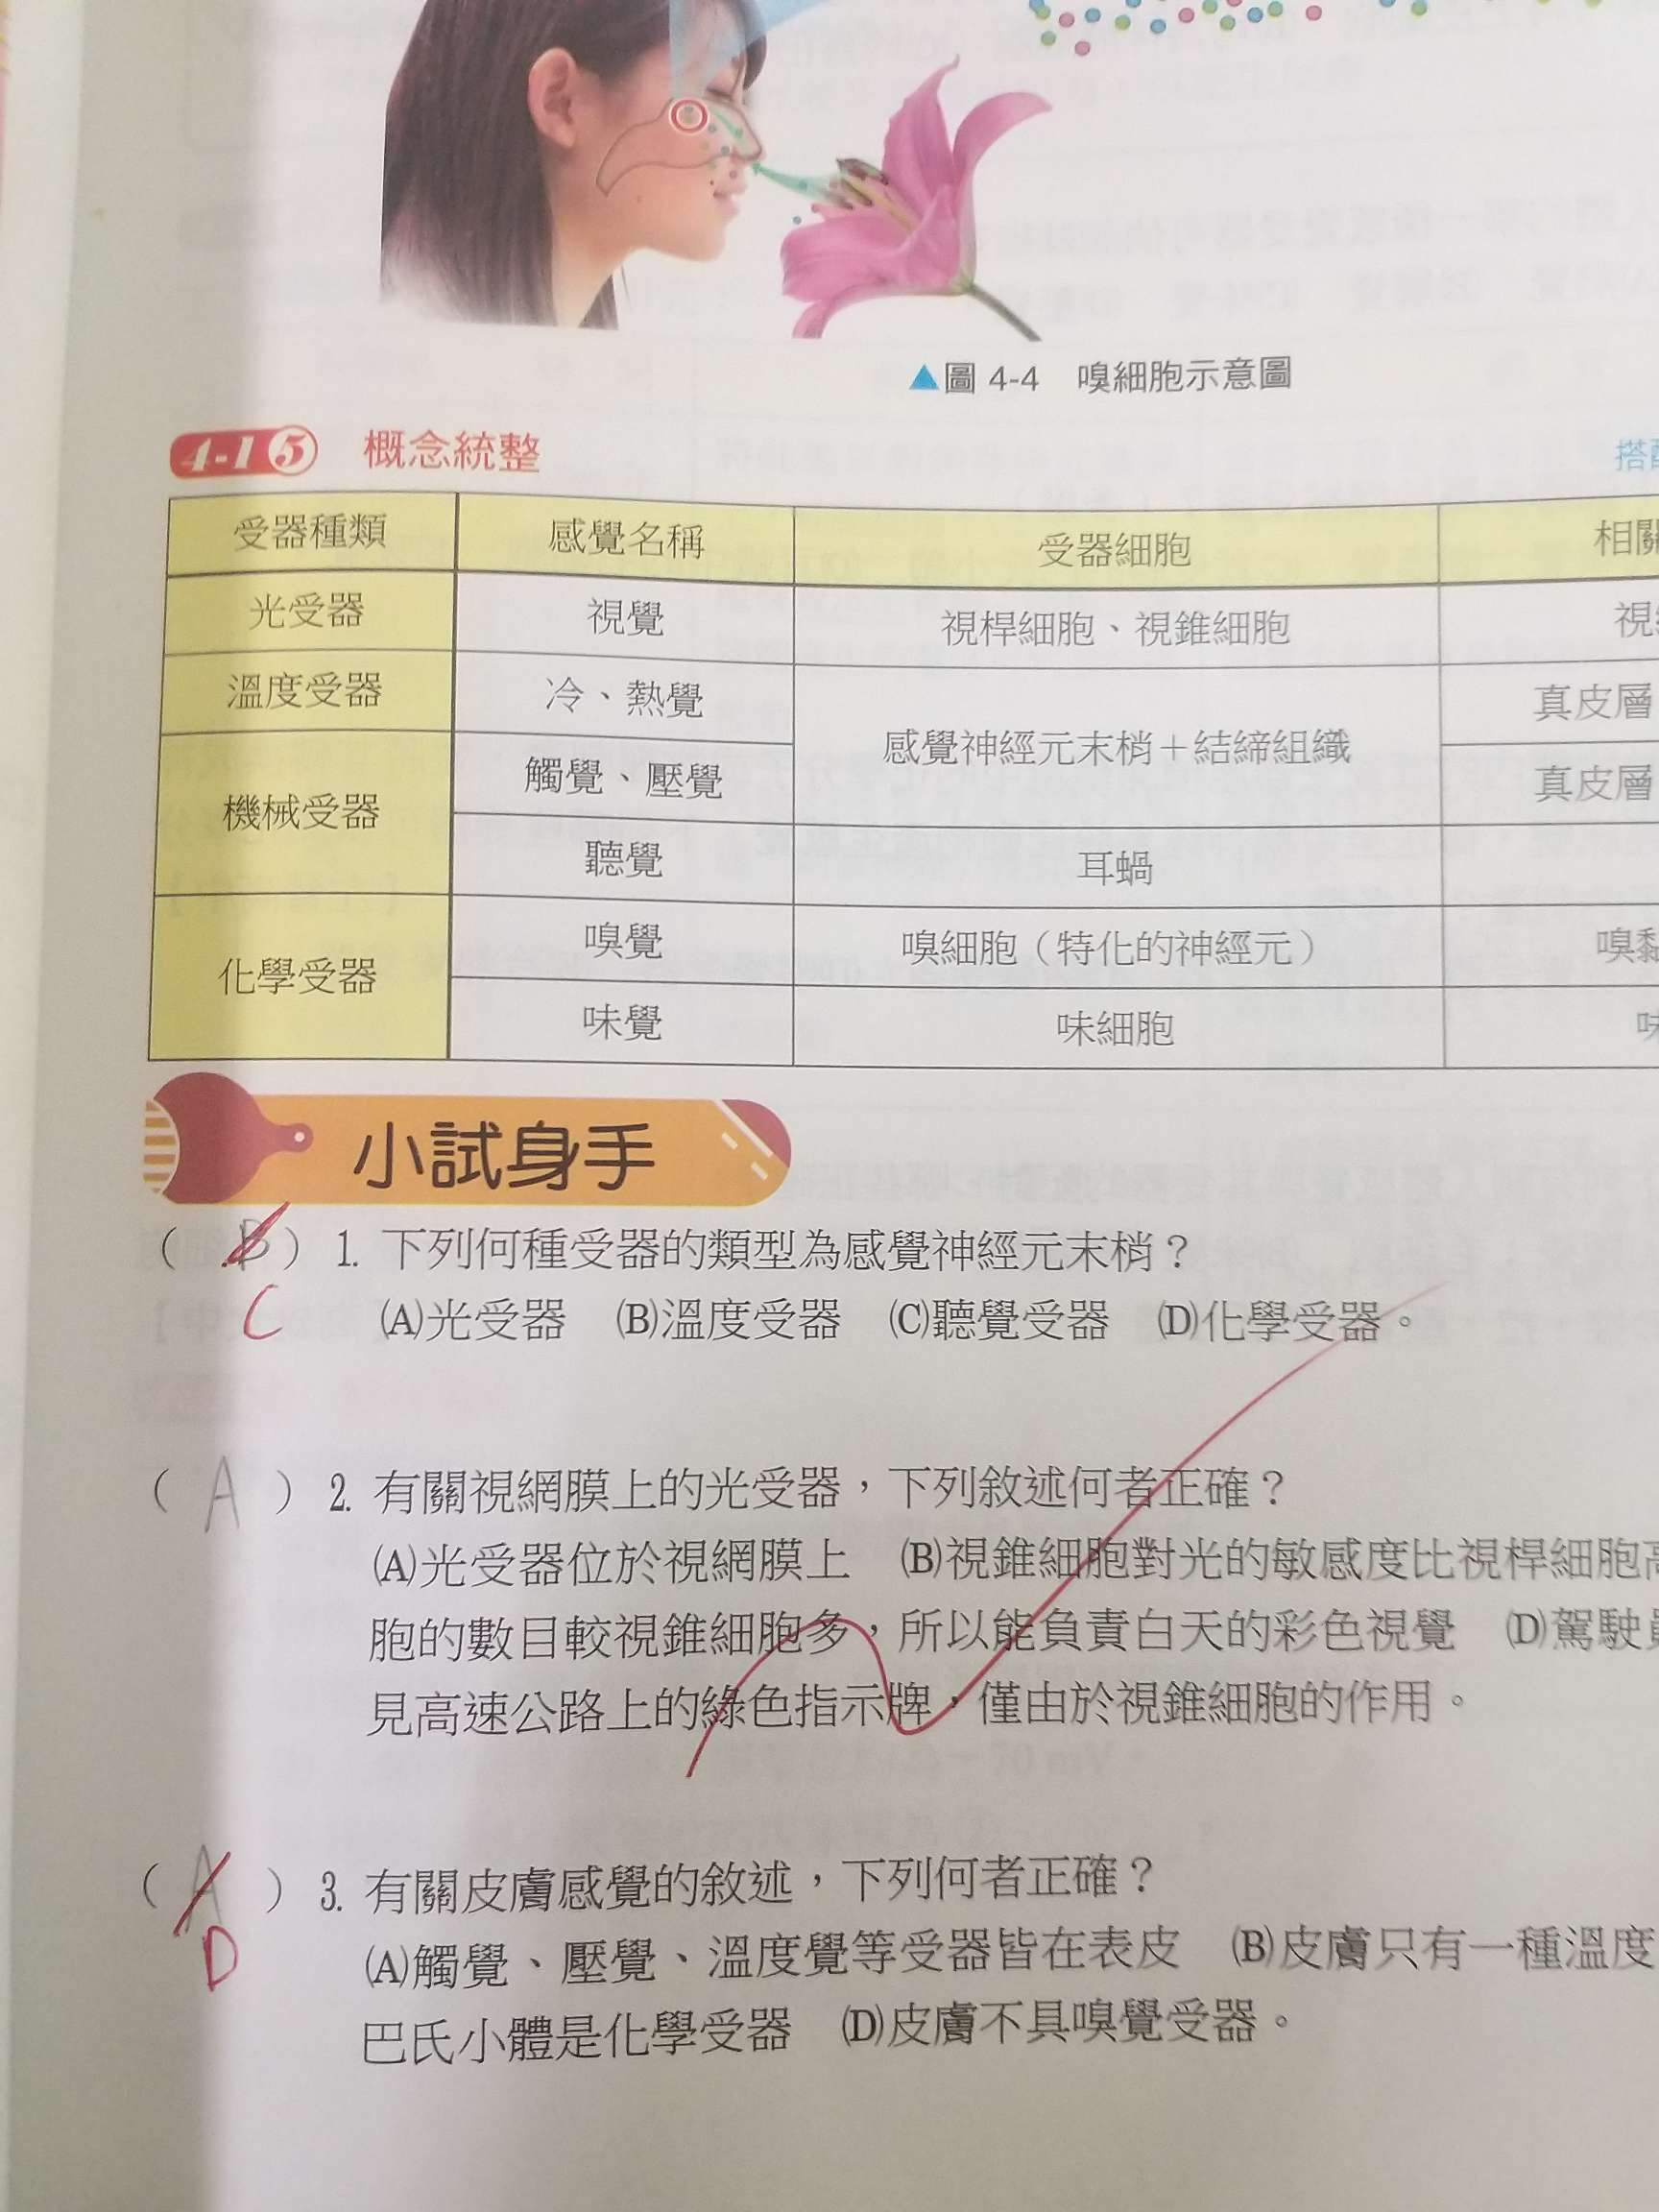 ▲圖 4-4 嗅細胞示意圖
4-1 5 概念統整
搭
受器種類 感覺名稱 受器細胞 相關
光受器 視覺 視桿細胞、視錐細胞 視
溫度受器 冷、熱覺 感覺神經元末梢＋結締組織 真皮層
機械受器 觸覺、壓覺 真皮層
聽覺 耳蝸
化學受器 嗅覺 嗅細胞（特化的神經元） 嗅
味覺 味細胞
小試身手
（ B ） 1. 下列何種受器的類型為感覺神經元末梢？
C (A)光受器 (B)溫度受器 (C)聽覺受器 (D)化學受器。
（ A ） 2. 有關視網膜上的光受器，下列敘述何者正確？
(A)光受器位於視網膜上 (B)視錐細胞對光的敏感度比視桿細胞高
胞的數目較視錐細胞多，所以能負責白天的彩色視覺 (D)駕駛
見高速公路上的綠色指示牌，僅由於視錐細胞的作用。
（ A ） 3. 有關皮膚感覺的敘述，下列何者正確？
D (A)觸覺、壓覺、溫度覺等受器皆在表皮 (B)皮膚只有一種溫度
巴氏小體是化學受器 (D)皮膚不具嗅覺受器。